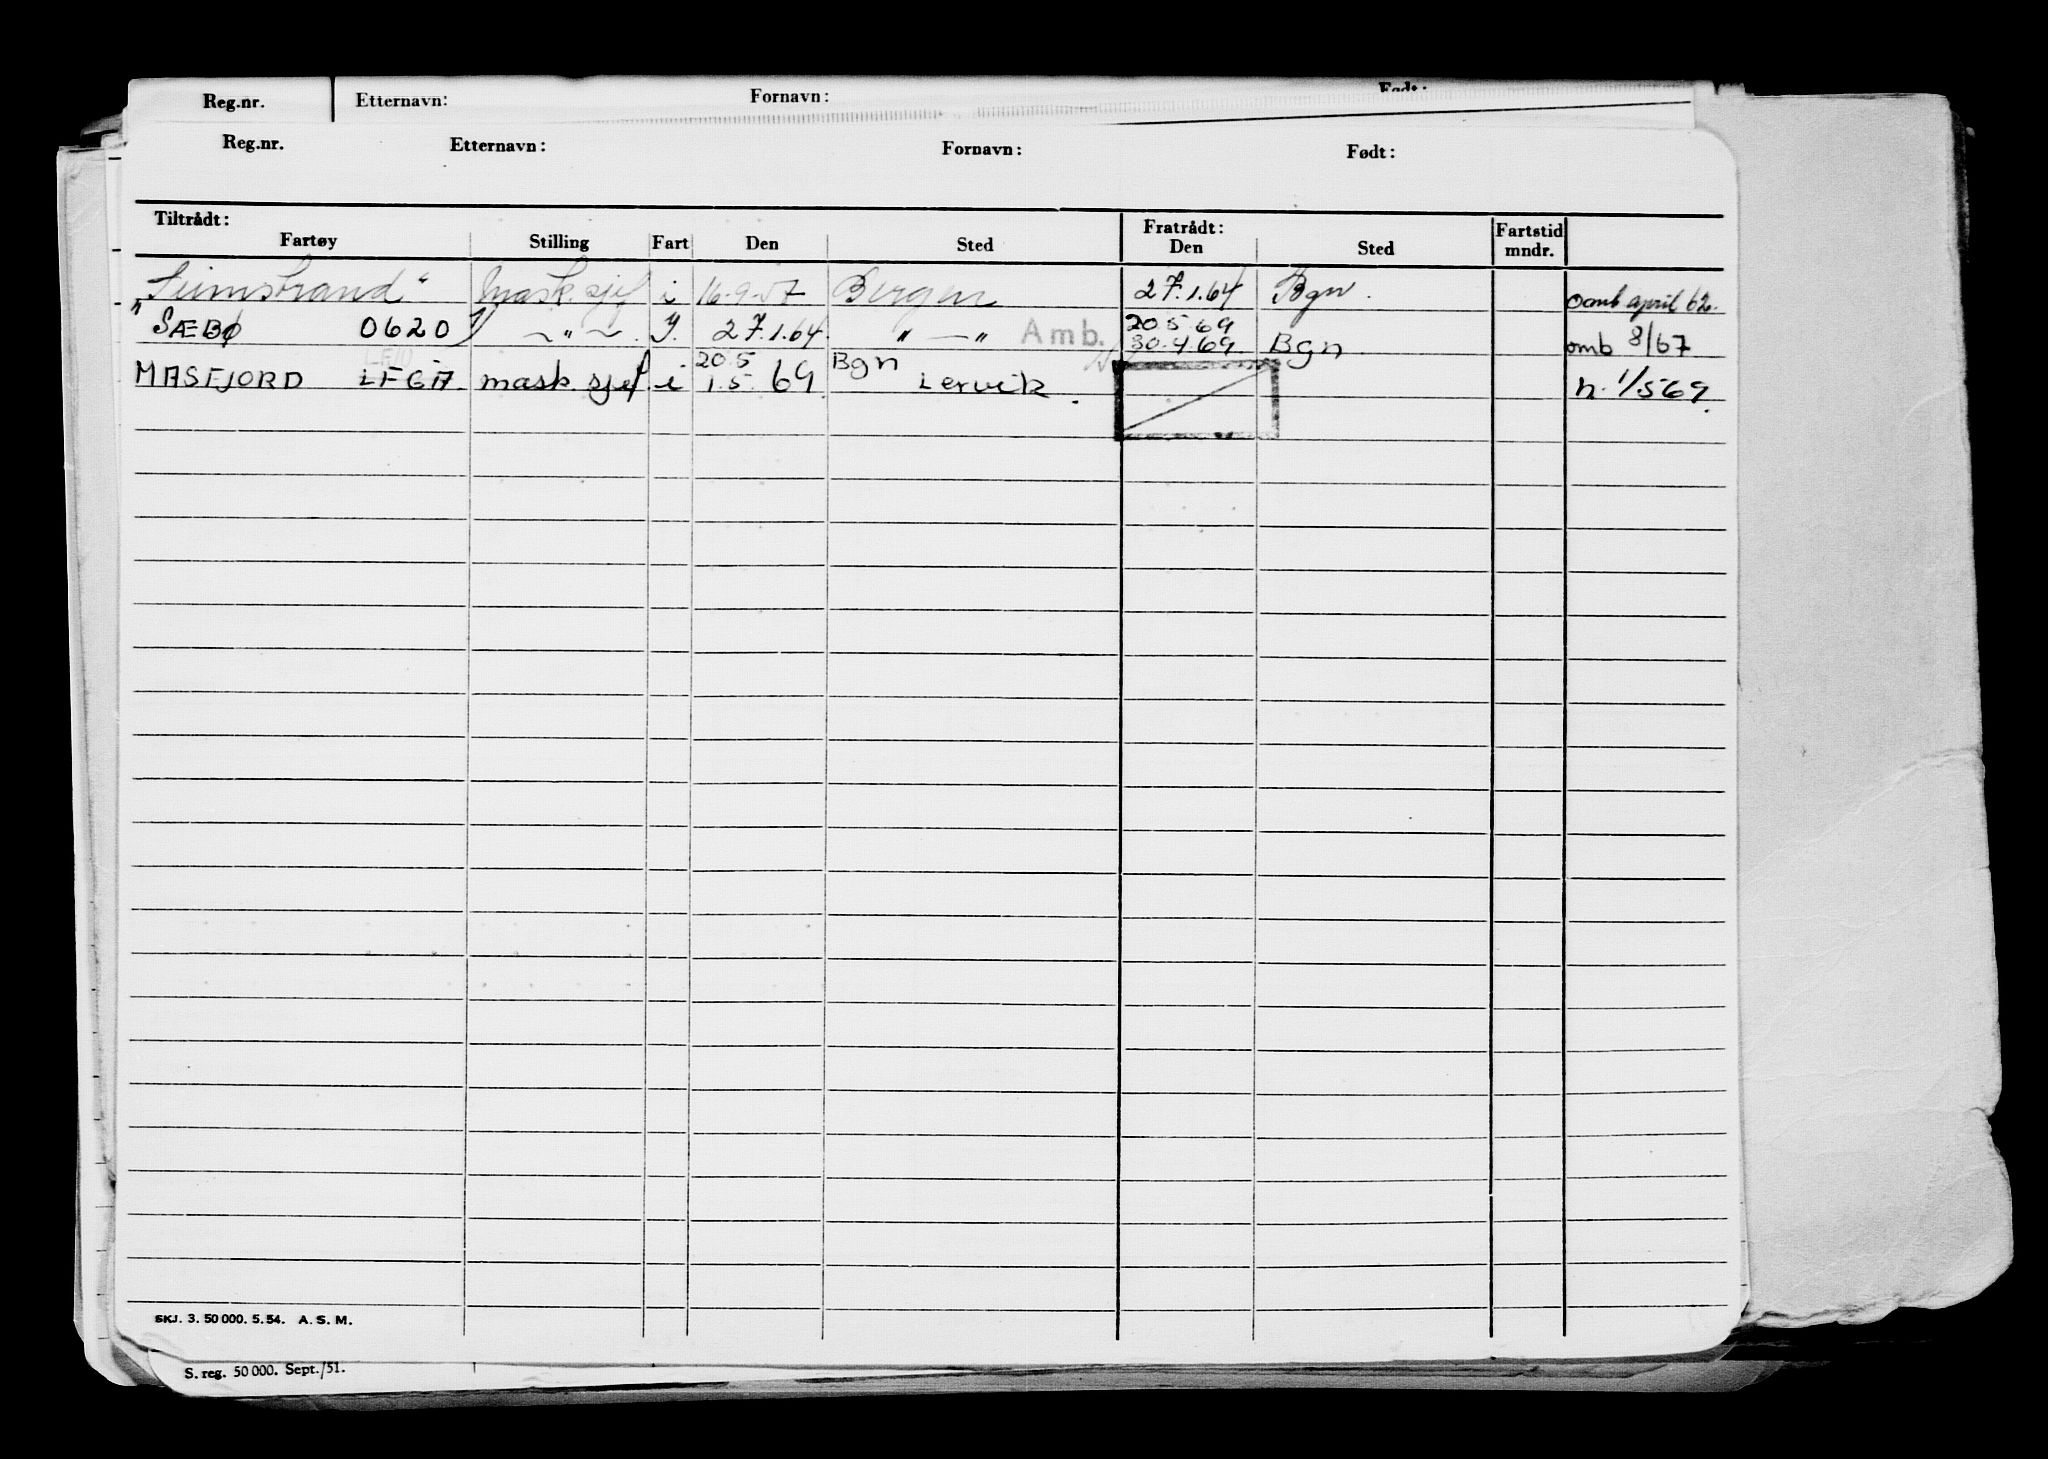 Reg.nr. Etternavn: Fornavn: Født:
Reg.nr. Etternavn: Fornavn: Født:
Tiltrådt: Fratrådt: Fartstid
Fartøy Stilling Fart Den Sted Den Sted mndr.
"Seimstrand" mask. sjef i 16-9-57 Bergen 27.1.64 Bgn. omb april 62.
"SÆBØ 0620 ~ " ~ I. 27.1.64 " — " Amb. 20.5.69 omb 8/67
30.4.69 Bgn
MASFJORD LFGA mask. sjef i 20.5 Bgn
1.5.69 Lervik. n. 1/.569.
SKJ. 3. 50 000. 5. 54. A. S. M.
S. reg. 50 000. Sept./51.